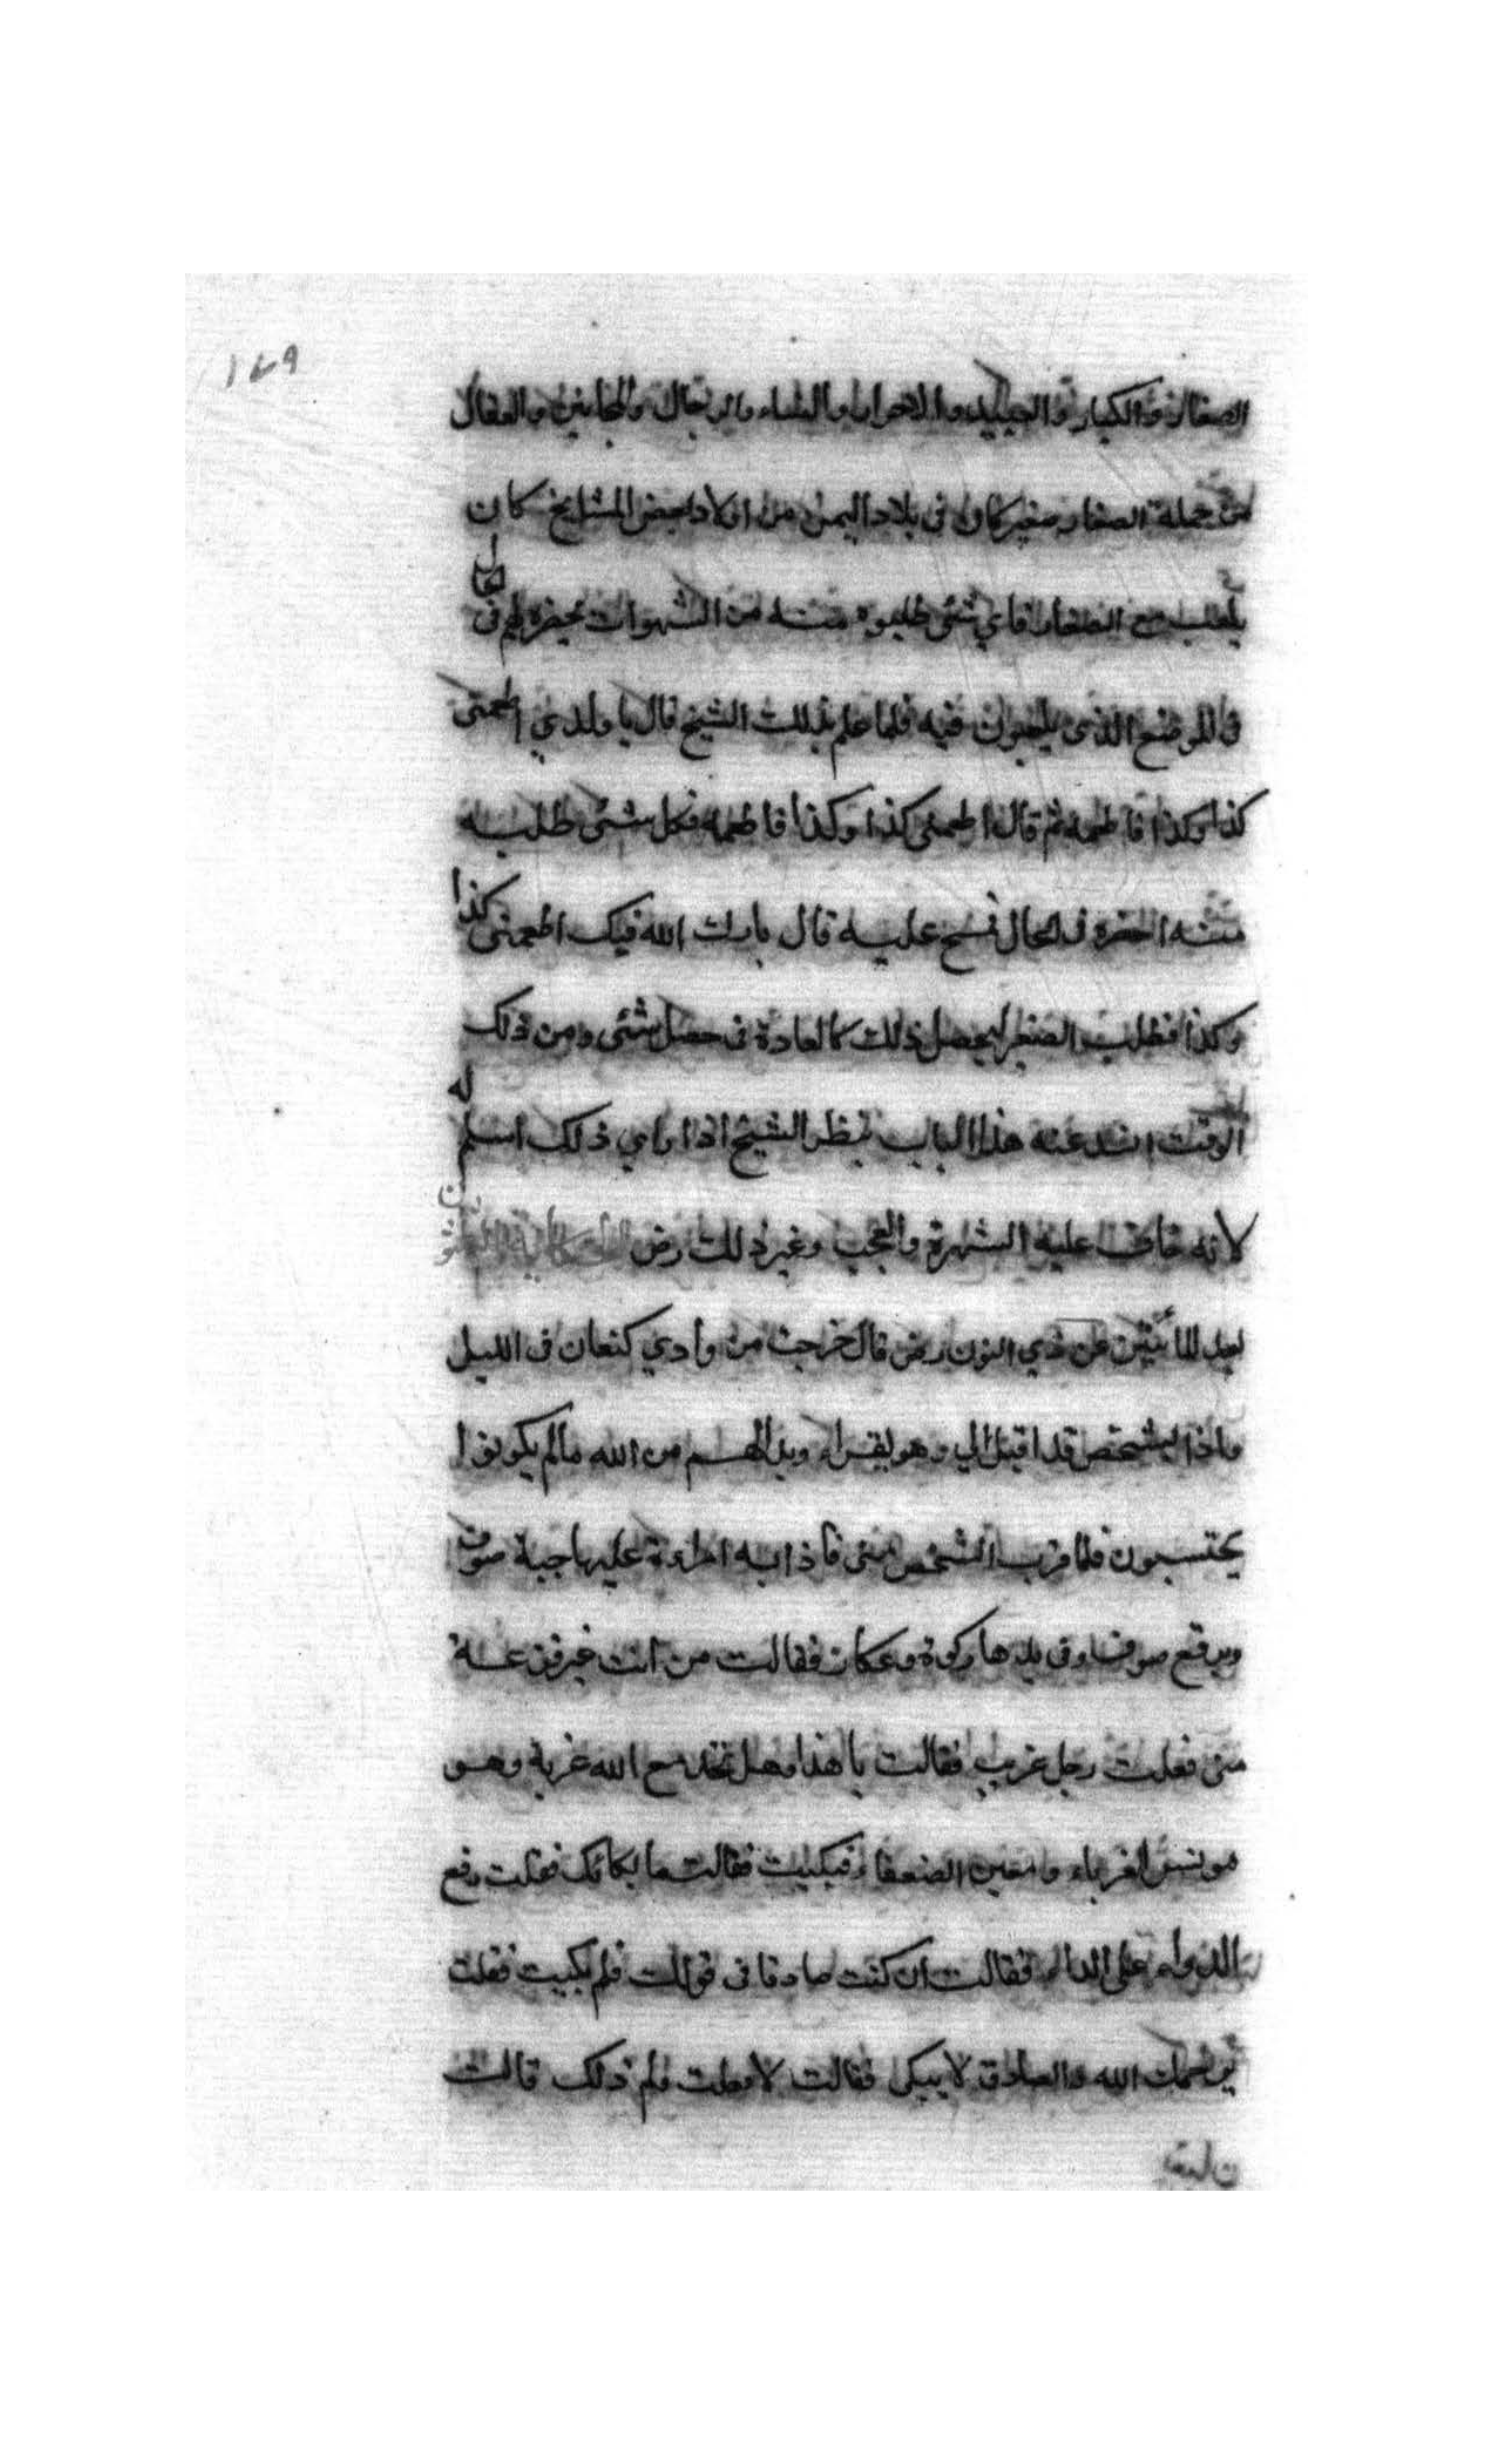 ١٧٩
الصغار والكبار والعبيد والاحرار والنساء والرجال والمجانين والعقال
من جملة الصغار صغير كان فى بلاد اليمن من اولاد بعض المشايخ كان
يلعب مع الصغار فاي شئ طلبوه منه من الشهوات يحضره لهم فى الحال
فى الموضع الذى يلعبون فيه فلما علم بذلك الشيخ قال يا ولدي اطعمنى
كذا وكذا فاطعمه ثم قال اطعمنى كذا وكذا فاطعمه فكل شئ طلبه
منه احضره فى الحال فمسح عليه قال بارك الله فيك اطعمنى كذا
وكذا فطلب الصغير ليحصل ذلك كالعادة فى حصل شئ ومن ذلك
الوقت انسد عنه هذا الباب نظر الشيخ اذا راي ذلك اسلم له
لانه خاف عليه الشهرة والعجب وغير ذلك رض الحكاية الثمانون
بعد المأتين عن ذي النون رض قال خرجت من وادي كنعان فى الليل
واذا بشخص قد اقبل الي وهو يقراء وبدا لهم من الله مالم يكونوا
يحتسبون فلما قرب الشخص منى فاذا به امراءة عليها جبة صوف
وبرقع صوف وفى يدها ركوة وعكاز فقالت من انت غير فزعة
منى فقلت رجل غريب فقالت يا هذا وهل تجد مع الله غربة وهو
مونس الغرباء ومعين الضعفاء فبكيت فقالت ما بكائك فقلت وقع
الدواء على الداء فقالت ان كنت صادقا فى قولك فلم بكيت فقلت
يرحمك الله والصادق لا يبكى فقالت لا فقلت ولم ذلك قالت